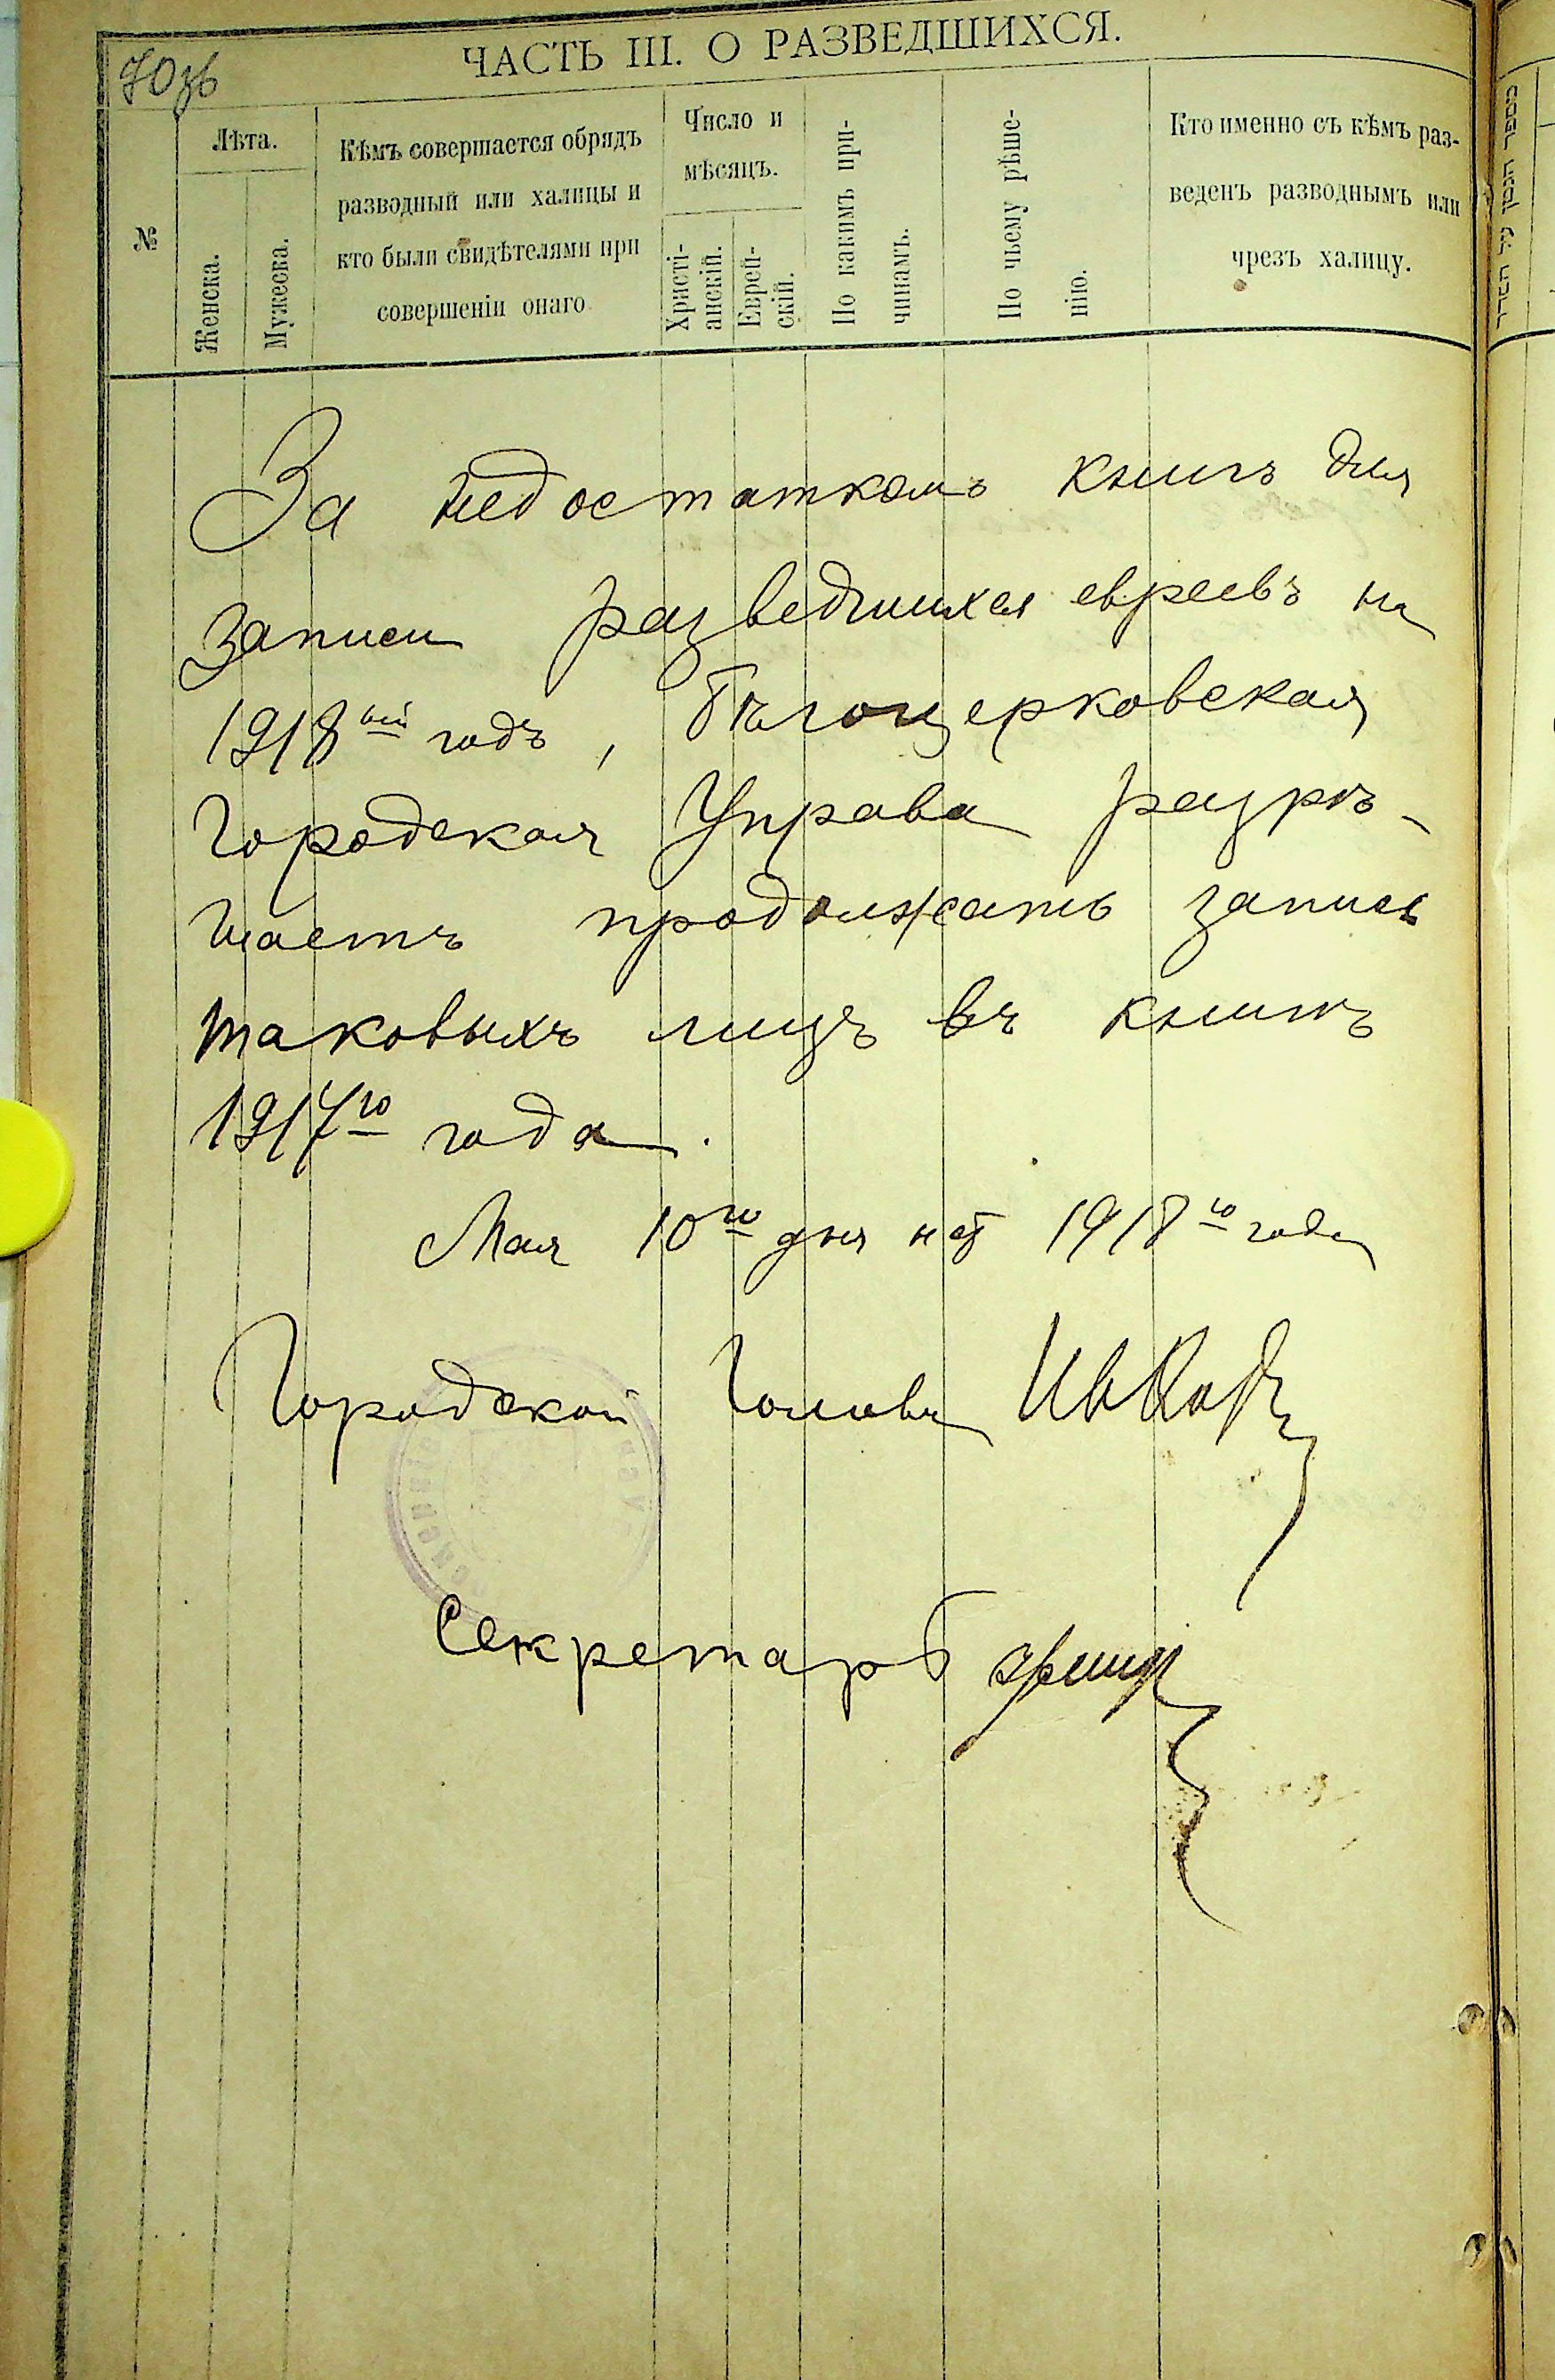 ЧАСТЬ III. О РАЗВЕДШИХСЯ.
70зв
№
Лѣта.
Женска.
Мужеска.
Кѣмъ совершается обрядъ
разводный или халицы и
кто были свидѣтелями при
совершеніи онаго.
Число и
мѣсяцъ.
Христі-
анскій.
Еврей-
скій.
По какимъ при-
чинамъ.
По чьему рѣше-
нію.
Кто именно съ кѣмъ раз-
веденъ разводнымъ или
чрезъ халицу.
За недостаткомъ книгъ для
записи разведшихся евреевъ на
1918ый годъ, Бѣлоцерковская
Городская Управа разрѣ-
шаетъ продолжать запись
таковыхъ лицъ въ книгѣ
1917го года.
Мая 10го дня 1918го года
Городской Голова
Секретарь